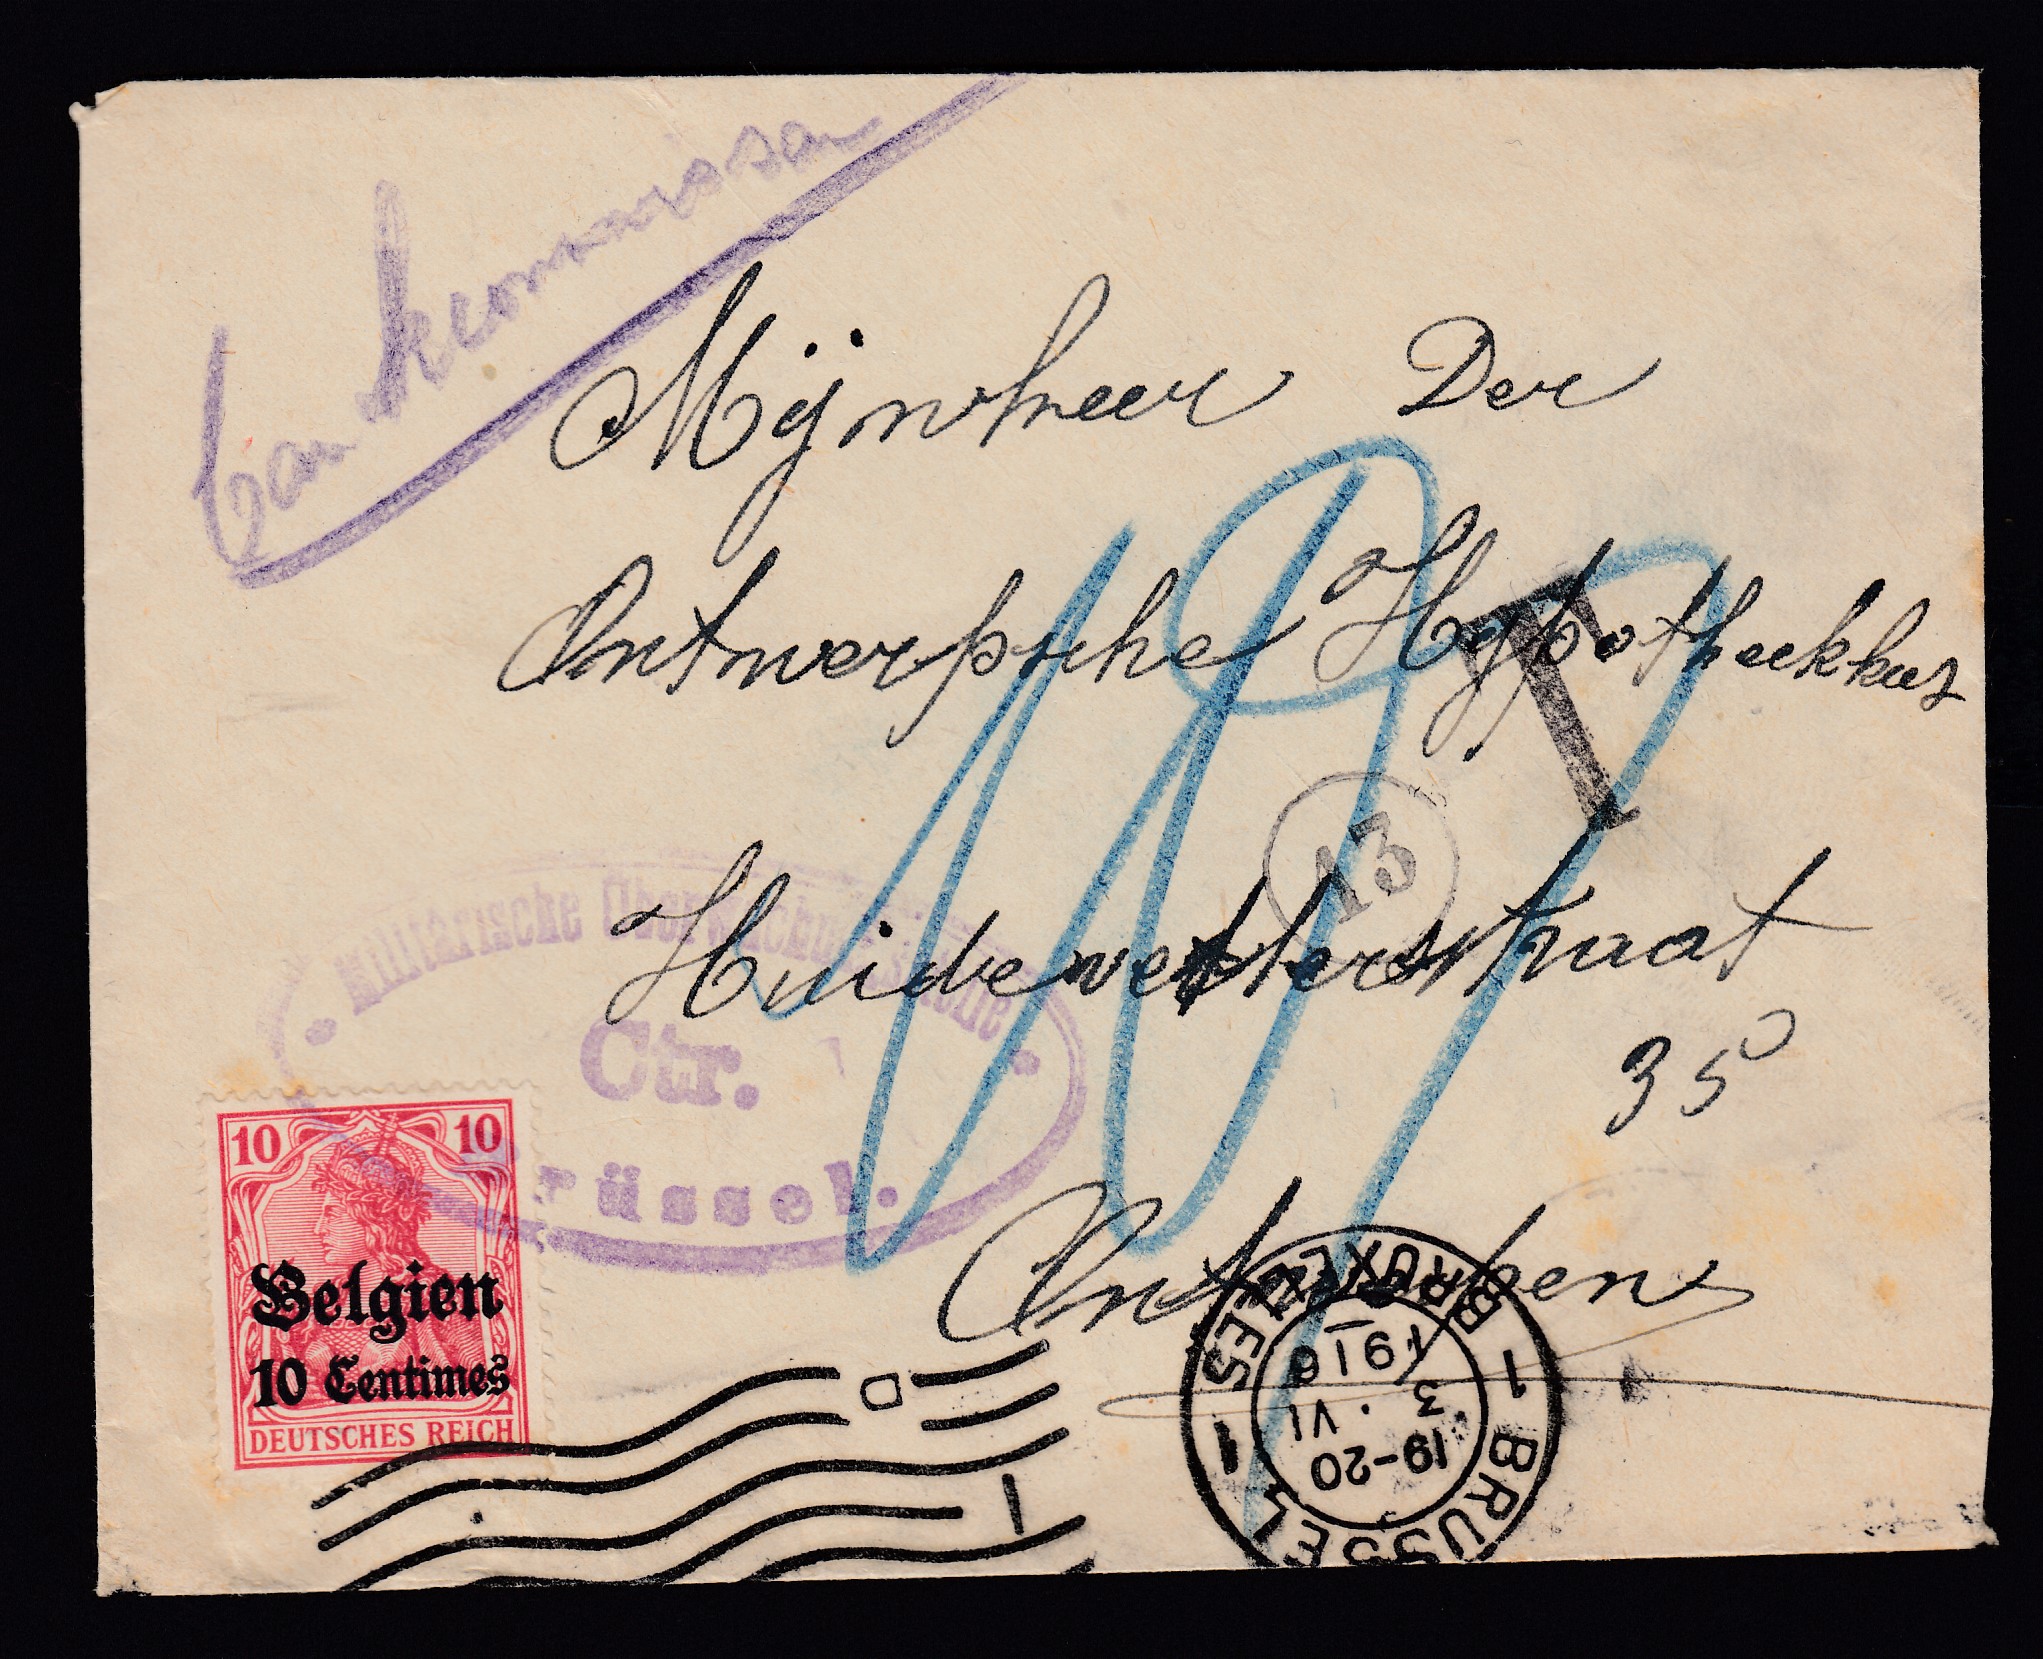 Bankkommissar
Mijnheer Der
Antwerpsche Hypotheekkas
T
13
Huidevettersstraat
35
Antwerpen
Militärische Überwachungsstelle
Ctr.
Brüssel.
10 10
Belgien
10 Centimes
DEUTSCHES REICH
1 BRUSSEL 1 BRUXELLES
19-20
3 . VI
1916